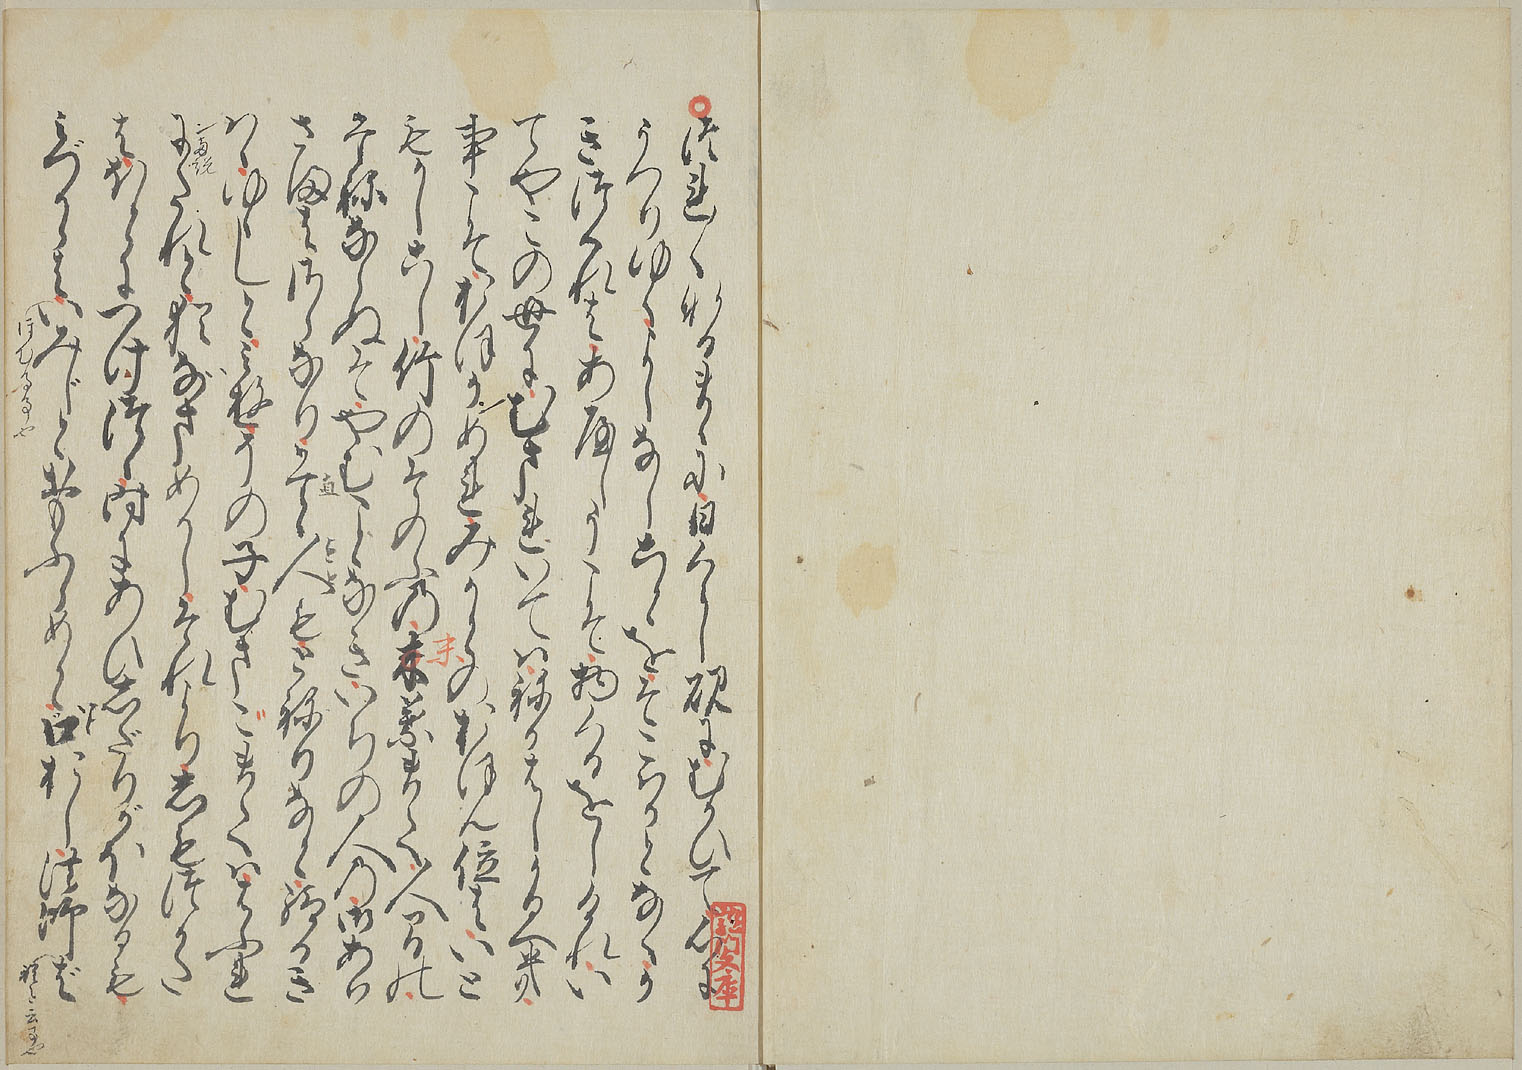 徒然〳〵なるまゝに日くらし硯にむかひて心に
うつりゆくよしなしことをそこはかとなくか
きつくれはあやしうこそ物くるをしけれい
てやこの世にむまれいてはねかはしかるへき
事こそおほかめれみかとの御位はいと
もかしこし竹のそのふの末葉まて人間の
末
たねならぬそやむことなきいちの人の御あり
さまはさらなりたゝ人もとねりなと給はるき
直
はゝゆゝしと見ゆその子むまこまてははふれ
にたれと猶なまめかしそれよりしもつかた
はほとにつけつゝ時にあひしたりがほなるも
みづからはいみじと思ふらめと
口おし法師ば